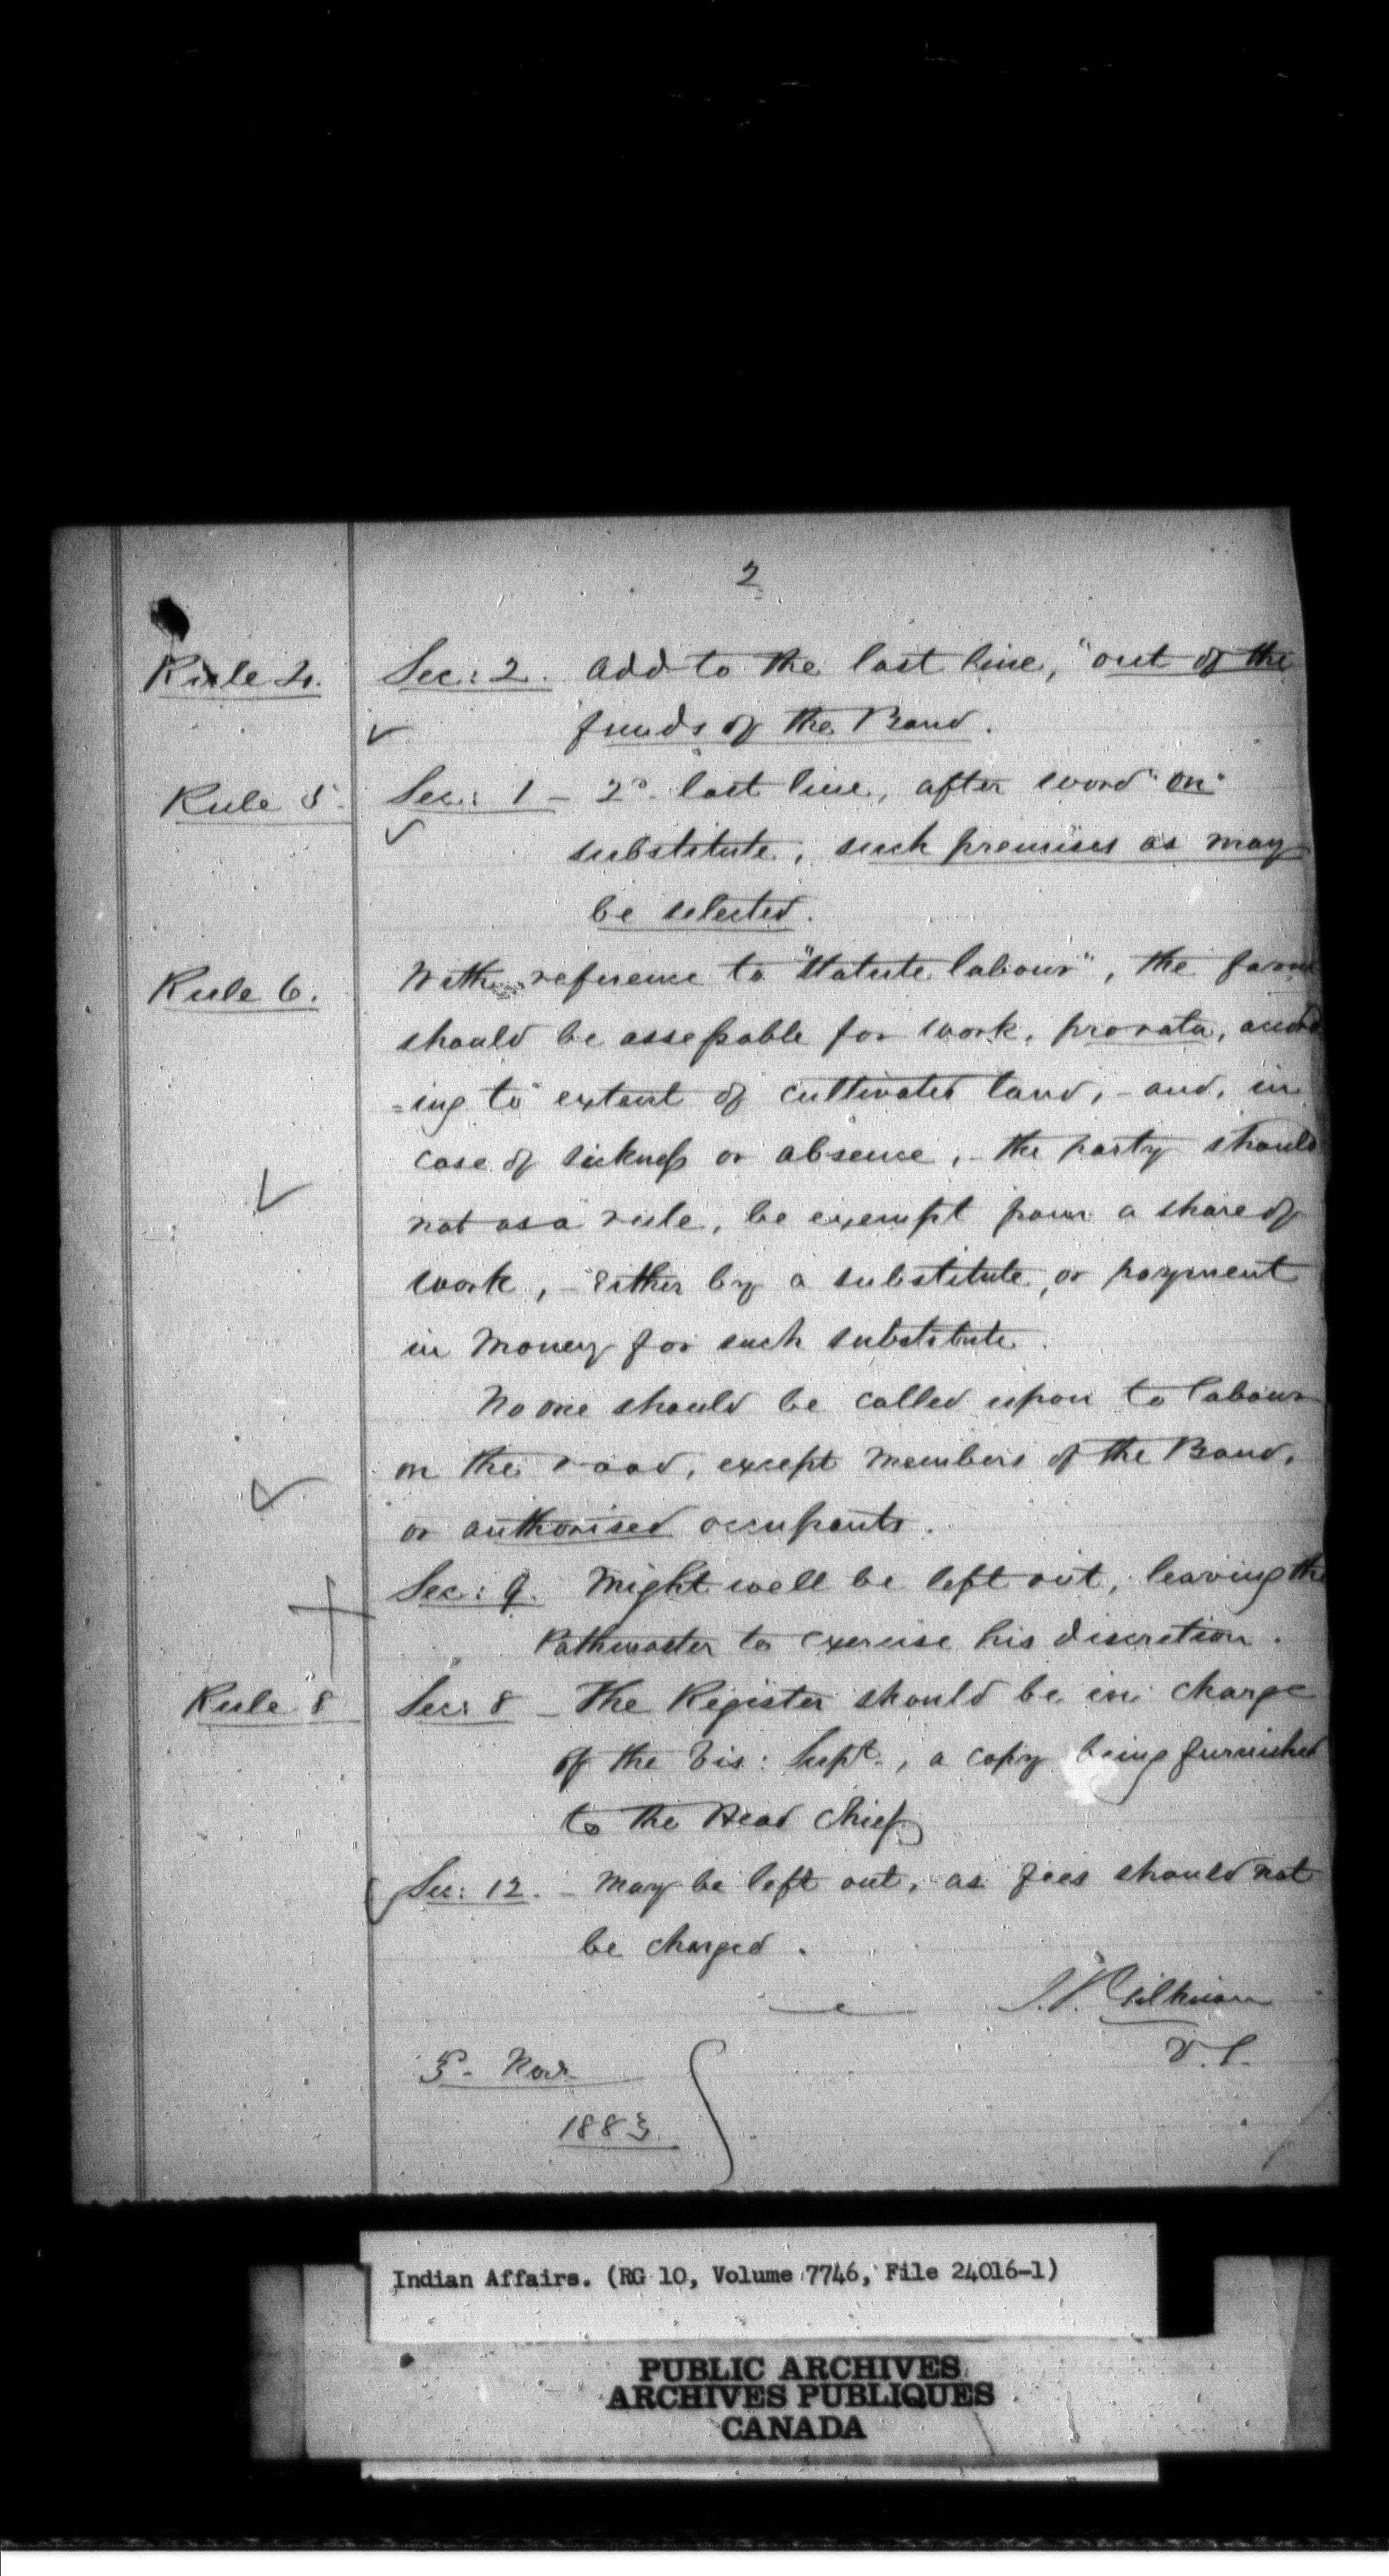 2
Rule 4. Sec: 2. Add to the last line, "out of the
funds of the Band.
Rule 5. Sec: 1 - 2d. last line, after word "on"
substitute, such premises as may
be selected.
Rule 6. With reference to "Statute labour", the
should be assessable for work, pro rata, accord
=ing to extent of cultivated land, - and, in
case of sickness or absence, - the party should
not as a rule, be exempt from a share of
work, - either by a substitute, or payment
in money for such substitute.
No one should be called upon to labour
on the road, except members of the Band,
or authorised occupants.
Sec: 9. Might well be left out, leaving the
Pathmaster to exercise his discretion.
Rule 8 Sec: 8 - The Register should be in charge
of the Vis: Supt., a copy being furnished
to the Head Chief
Sec: 12. - May be left out, as fees should not
be charged.
J.T. Gilkison
V.S.
Nov.
1883.
Indian Affairs. (RG 10, Volume 7746, File 24016-1)
PUBLIC ARCHIVES
ARCHIVES PUBLIQUES
CANADA